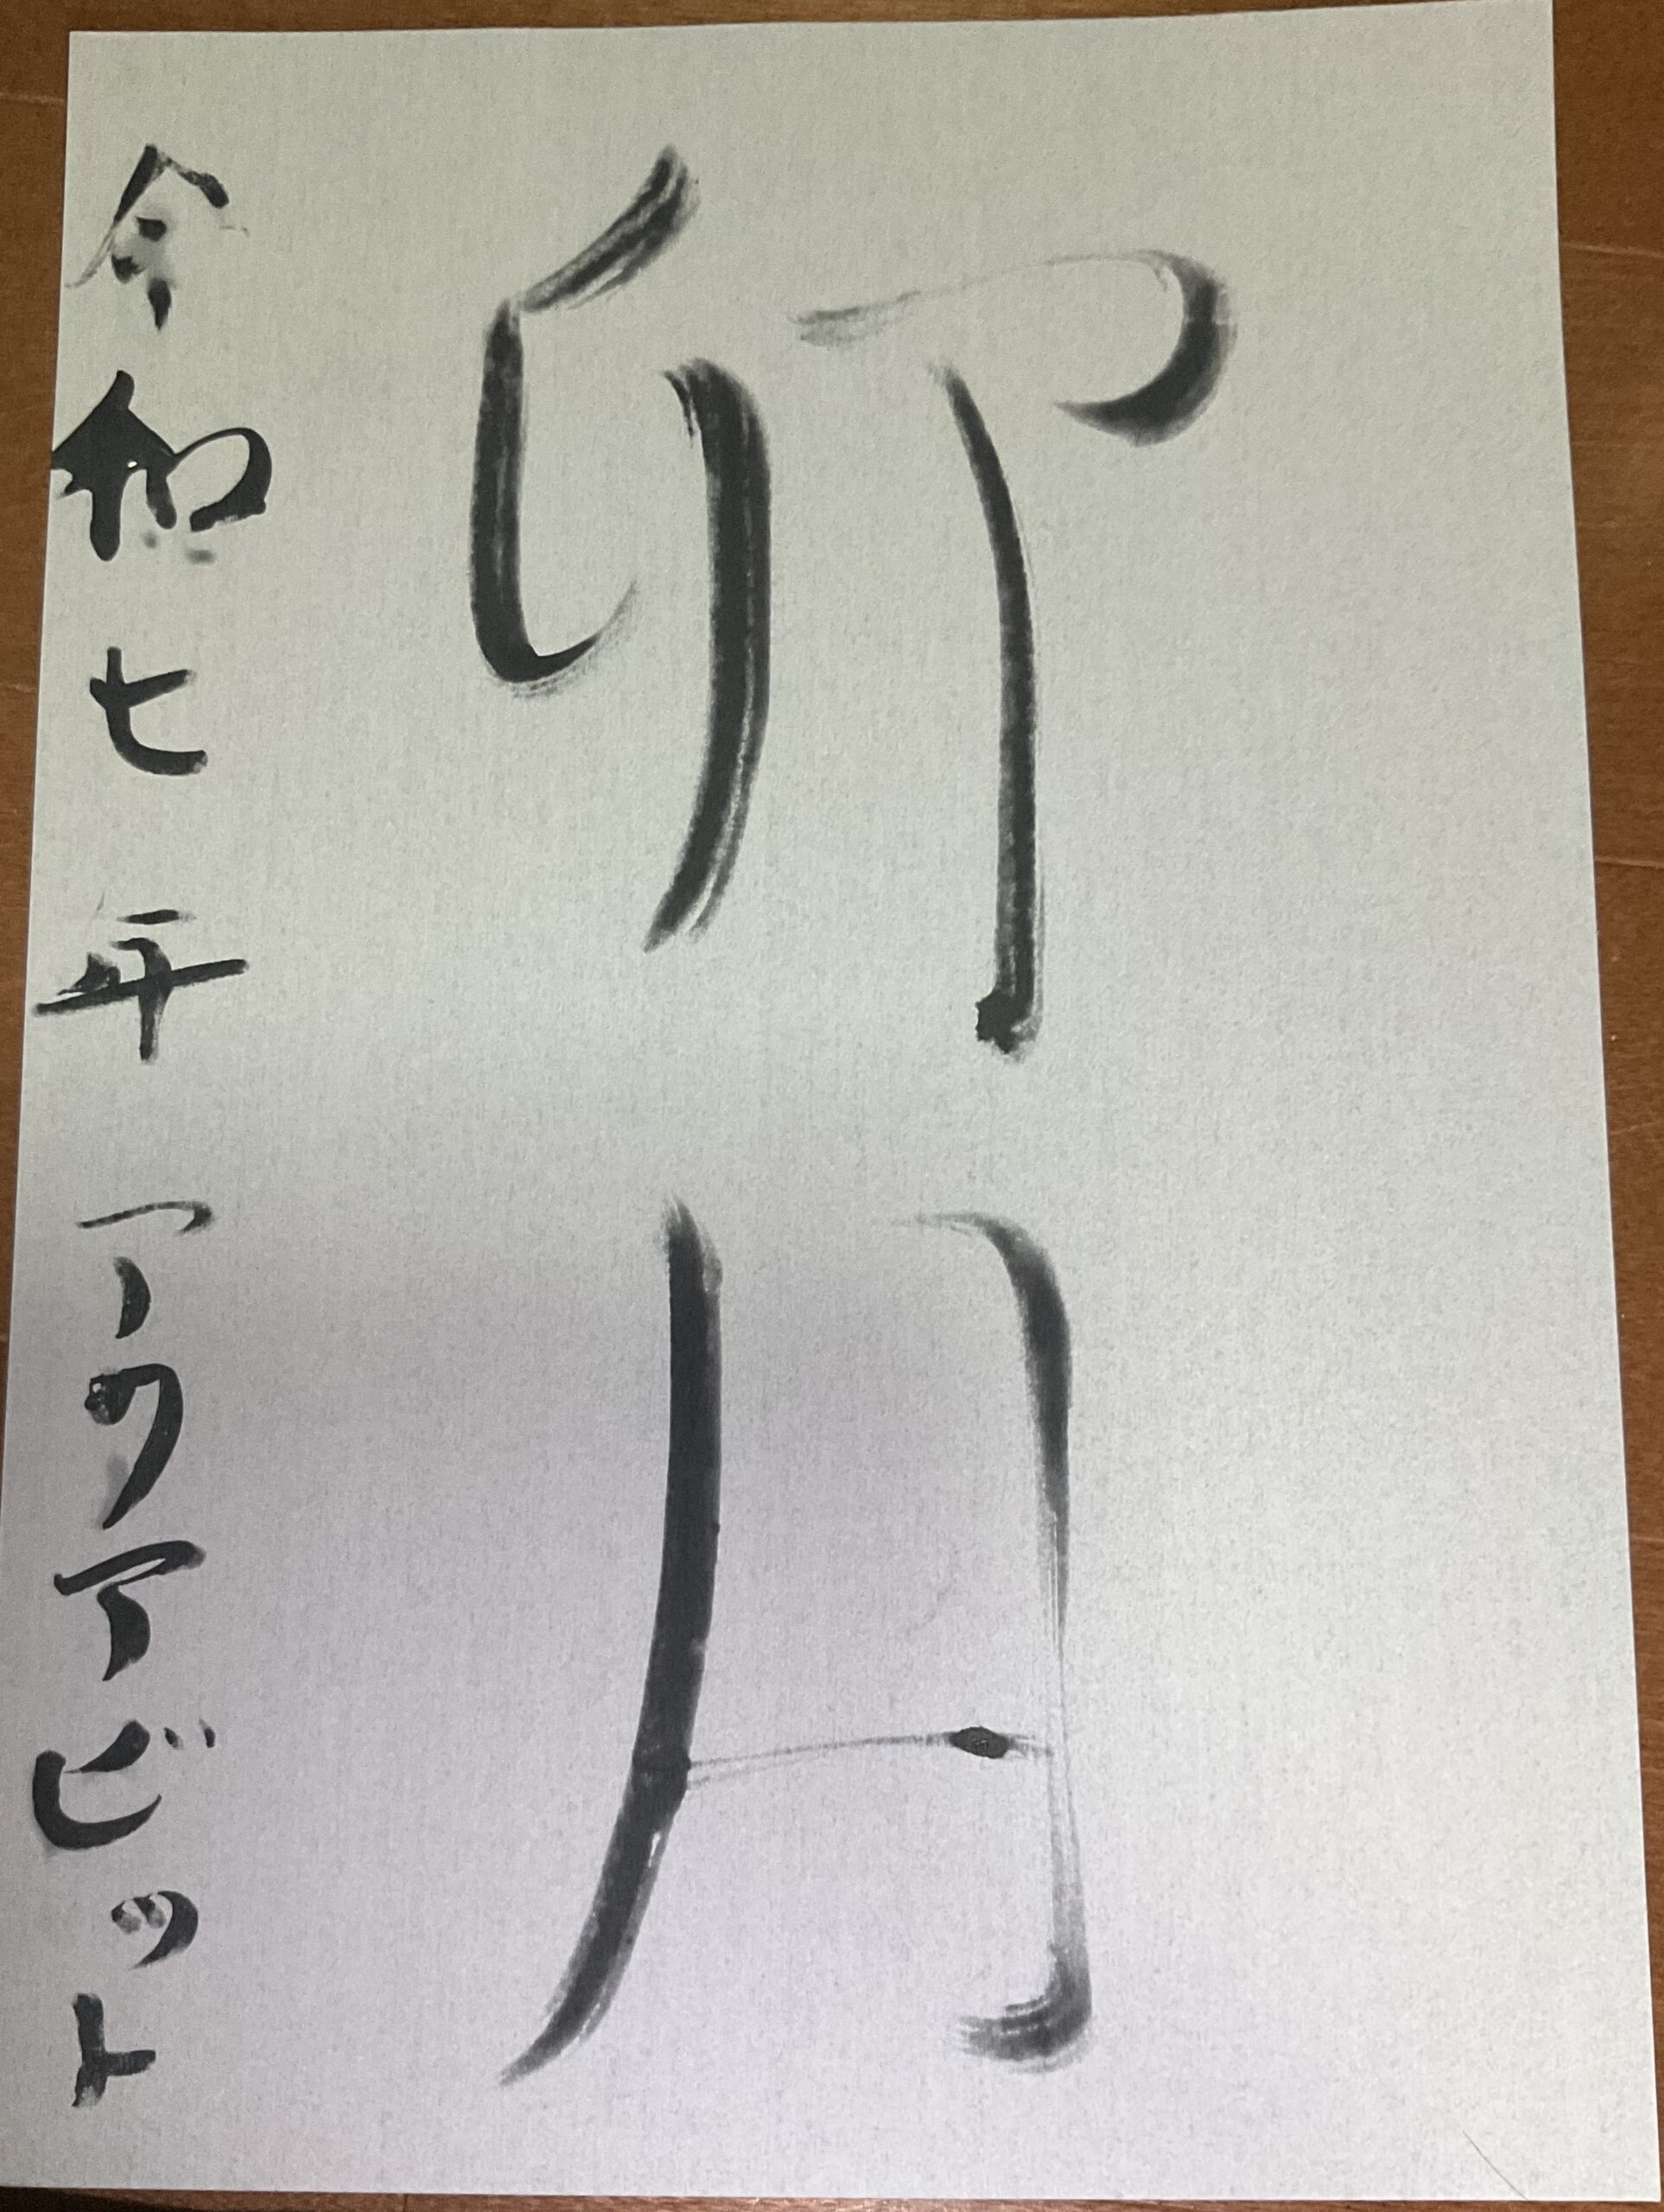 卯月
令和七年アクアビット